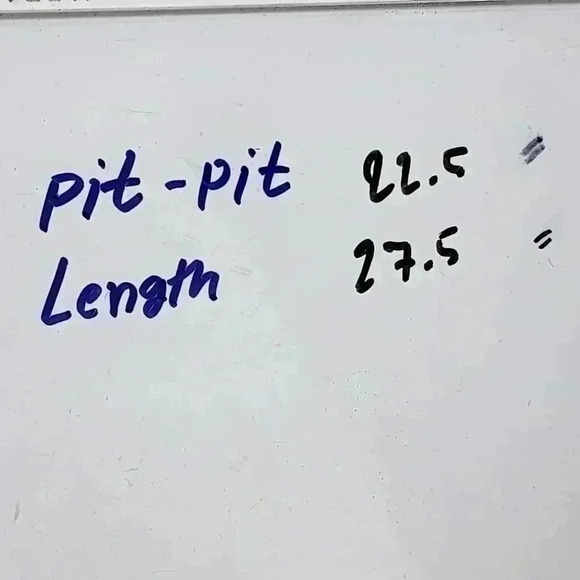 pit-pit 22.5 "
Length 27.5 "